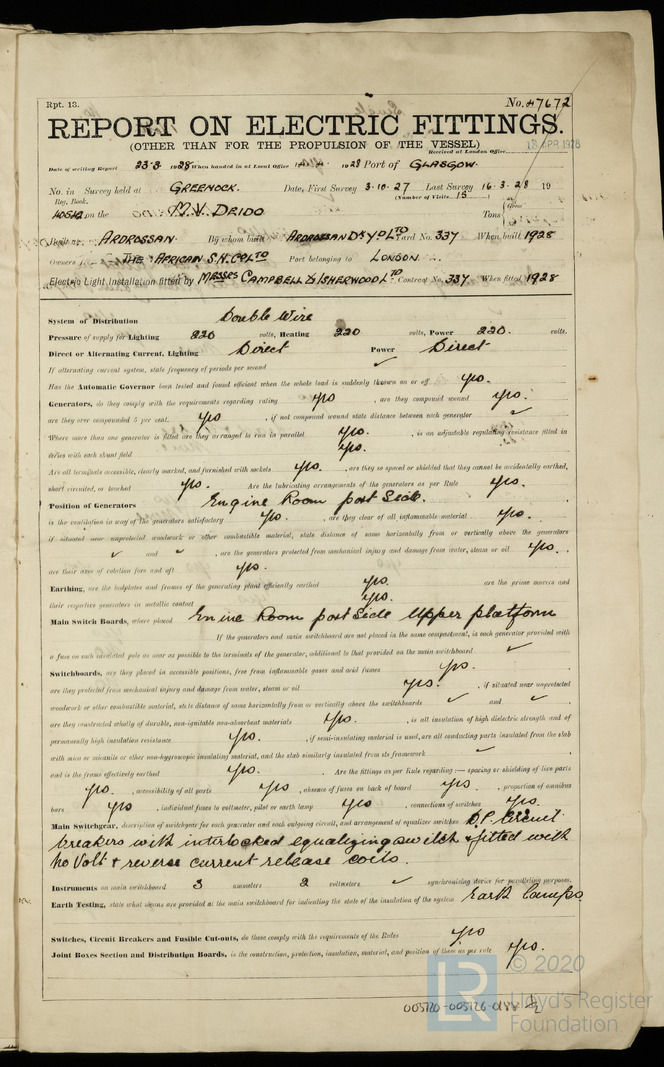 Rpt. 13.
No. 47672
REPORT ON ELECTRIC FITTINGS.
(OTHER THAN FOR THE PROPULSION OF THE VESSEL)
Received at London Office 18 APR 1928
Date of writing Report 23·3· 1928 When handed in at Local Office 1928 Port of GLASGOW.
No. in Survey held at GREENOCK. Date, First Survey 3·10·27 Last Survey 16·3·28 19
Reg. Book. (Number of Visits 15)
40512 on the M.V. DEIDO Tons { Gross
Built at ARDROSSAN By whom built ARDROSSAN DKYD LTD Yard No. 337 When built 1928
Owners THE AFRICAN S.H. COY LTD Port belonging to LONDON
Electric Light Installation fitted by MESSRS CAMPBELL & ISHERWOOD LTD Contract No. 337 When fitted 1928
System of Distribution Double Wire
Pressure of supply for Lighting 220 volts, Heating 220 volts, Power 220. volts.
Direct or Alternating Current, Lighting Direct Power Direct
If alternating current, state frequency of periods per second ✓
Has the Automatic Governor been tested and found efficient when the whole load is suddenly thrown on or off yes.
Generators, do they comply with the requirements regarding rating yes, are they compound wound yes.
are they over compounded 5 per cent. yes, if not compound wound state distance between each generator ✓
Where more than one generator is fitted are they arranged to run in parallel yes., is an adjustable regulating resistance fitted in
series with each shunt field yes.
Are all terminals accessible, clearly marked, and furnished with sockets yes., are they so spaced or shielded that they cannot be accidentally earthed,
short circuited, or touched yes. Are the lubricating arrangements of the generators as per Rule yes.
Position of Generators Engine Room port Side.
is the ventilation in way of the generators satisfactory yes., are they clear of all inflammable material yes.
if situated near unprotected woodwork or other combustible material, state distance of same horizontally from or vertically above the generators
✓ and ✓, are the generators protected from mechanical injury and damage from water, steam or oil yes.
are their axes of rotation fore and aft yes.
Earthing, are the bedplates and frames of the generating plant efficiently earthed yes. are the prime movers and
their respective generators in metallic contact yes.
Main Switch Boards, where placed Enine Room port Side Upper platform
If the generators and main switchboard are not placed in the same compartment, is each generator provided with
a fuse on each insulated pole as near as possible to the terminals of the generator, additional to that provided on the main switchboard ✓
Switchboards, are they placed in accessible positions, free from inflammable gases and acid fumes yes.
are they protected from mechanical injury and damage from water, steam or oil yes., if situated near unprotected
woodwork or other combustible material, state distance of same horizontally from or vertically above the switchboards ✓ and ✓
are they constructed wholly of durable, non-ignitable non-absorbent materials yes., is all insulation of high dielectric strength and of
permanently high insulation resistance yes., if semi-insulating material is used, are all conducting parts insulated from the slab
with mica or micanite or other non-hygroscopic insulating material, and the slab similarly insulated from its framework ✓
and is the frame effectively earthed yes. Are the fittings as per Rule regarding :— spacing or shielding of live parts
yes., accessibility of all parts yes, absence of fuses on back of board yes., proportion of omnibus
bars yes, individual fuses to voltmeter, pilot or earth lamp yes, connections of switches yes.
Main Switchgear, description of switchgear for each generator and each outgoing circuit, and arrangement of equalizer switches D.P. Circuit
breakers with interlocked equalizing switch & fitted with
No Volt & reverse current release coils.
Instruments on main switchboard 3 ammeters 2 voltmeters ✓ synchronising device for paralleling purposes.
Earth Testing, state what means are provided at the main switchboard for indicating the state of the insulation of the system Earth lamps
Switches, Circuit Breakers and Fusible Cut-outs, do these comply with the requirements of the Rules yes
Joint Boxes Section and Distribution Boards, is the construction, protection, insulation, material, and position of these as per rule yes.
© 2020
LR Lloyd's Register
Foundation
005120-005126-0188 1/2